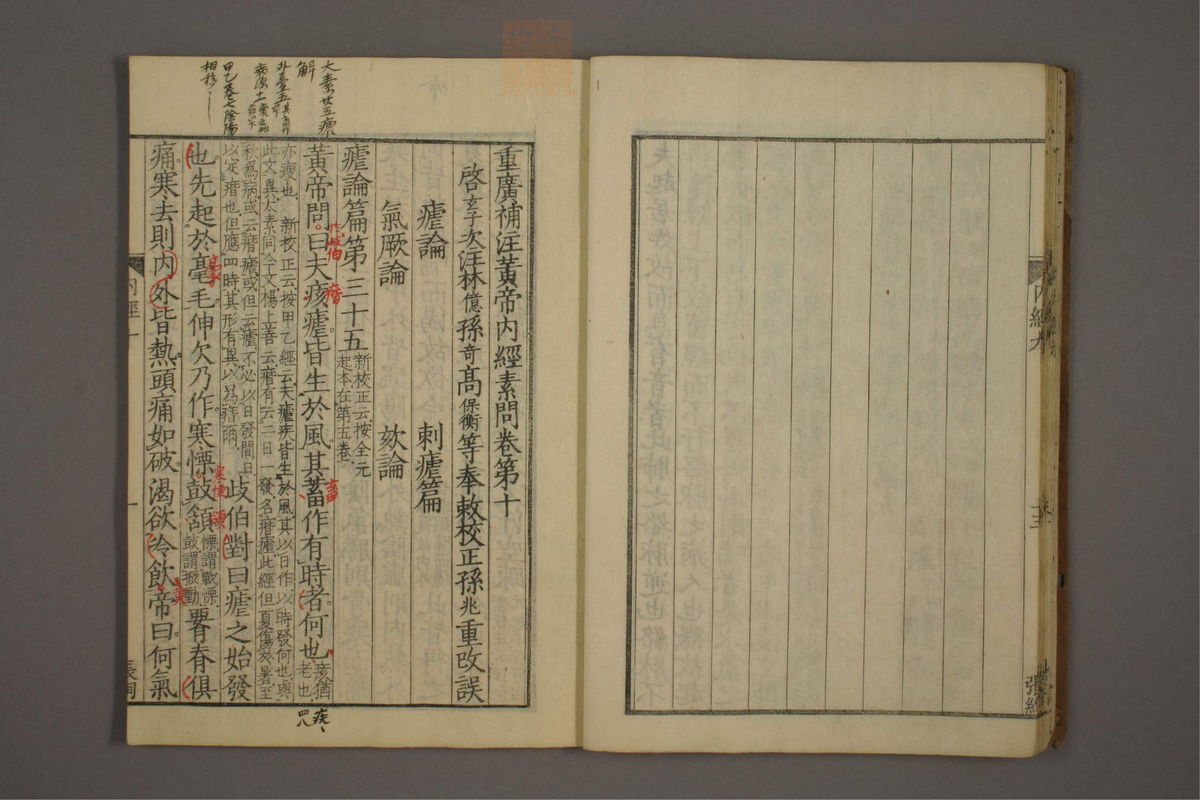 重廣補注黃帝內經素問卷第十
啓玄子次注林億孫奇高保衡等奉敕校正孫兆重改誤
瘧論 刺瘧篇
氣厥論 欬論
瘧論篇第三十五 新校正云按全元
起本在第五卷
黃帝問曰夫痎瘧皆生於風其蓄作有時者何也 痎猶老也
亦瘦也 新校正云按甲乙經云夫瘧疾皆生於風其以日作以時發何也與
此文異太素同今文楊上善云痎有云二日一發名痎瘧此經但夏傷於暑至
秋爲病或云痎瘧或但云瘧不必以日發間日
以定痎也但應四時其形有異以爲痎爾
歧伯對曰瘧之始發
也先起於毫毛伸欠乃作寒慄鼓頷 慄謂戰慄
鼓謂振動
腰脊俱
痛寒去則內外皆熱頭痛如破渴欲冷飲帝曰何氣
內經十
一
太素廿五瘧
解
外臺五
甲乙卷七陰陽
相移
內經九